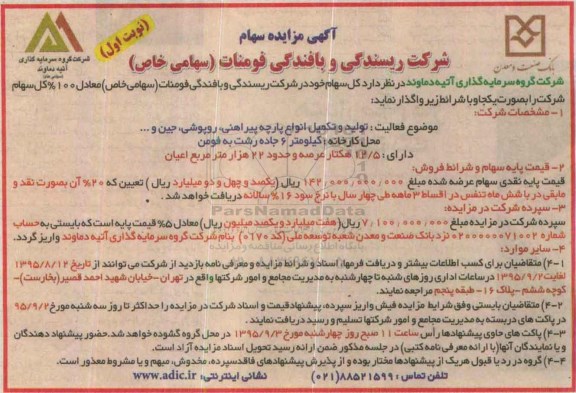 آگهی مزایده سهام
شرکت ریسندگی و بافندگی فومنات (سهامی خاص)
(نوبت اول)
بانک صنعت و معدن
شرکت گروه سرمایه گذاری
آتیه دماوند
(سهامی خاص)
شرکت گروه سرمایه گذاری آتیه دماوند در نظر دارد کل سهام خود در شرکت ریسندگی و بافندگی فومنات (سهامی خاص) معادل ۱۰۰% کل سهام
شرکت را بصورت یکجا و با شرائط زیر واگذار نماید:
۱- مشخصات شرکت:
موضوع فعالیت : تولید و تکمیل انواع پارچه پیراهنی، روپوشی، جین و ...
محل کارخانه : کیلومتر ۶ جاده رشت به فومن
دارای : ۱۲/۵ هکتار عرصه و حدود ۲۲ هزار متر مربع اعیان
۲- قیمت پایه سهام و شرائط فروش:
قیمت پایه نقدی سهام عرضه شده مبلغ ۱۴۲,۰۰۰,۰۰۰,۰۰۰ ریال (یکصد و چهل و دو میلیارد ریال ) تعیین که ۲۰% آن بصورت نقد و
مابقی در شانزده قسط در اقساط ۳ ماهه طی چهار سال با نرخ سود ۱۶% سالانه دریافت خواهد شد .
۳- سپرده شرکت در مزایده:
سپرده شرکت در مزایده مبلغ ۷,۱۰۰,۰۰۰,۰۰۰ ریال (هفت میلیارد و یکصد میلیون ریال) معادل ۵% قیمت پایه است که بایستی به حساب
شماره ۰۲۰۰۰۰۰۰۷۱۰۰۲ نزد بانک صنعت و معدن شعبه توسعه ملی (کد ۰۱۷۰) بنام شرکت گروه سرمایه گذاری آتیه دماوند واریز گردد.
۴- سایر موارد:
۴-۱) متقاضیان برای کسب اطلاعات بیشتر و دریافت فرمها، اسناد و شرائط مزایده و معرفی نامه بازدید از شرکت می توانند از تاریخ ۱۳۹۵/۸/۱۲
لغایت ۱۳۹۵/۹/۲ در ساعات اداری روزهای شنبه تا چهارشنبه به مدیریت مجامع و امور شرکتها واقع در تهران -خیابان شهید احمد قصیر(بخارست)-
کوچه ششم -پلاک ۱۶- طبقه پنجم مراجعه نمایند.
۴-۲) متقاضیان بایستی وفق شرایط مزایده فیش واریز سپرده، پیشنهاد قیمت و اسناد شرکت در مزایده را حداکثر تا روز سه شنبه مورخ ۹۵/۹/۲
در پاکت های دربسته به مدیریت مجامع و امور شرکتها تسلیم و رسید دریافت نمایند.
۴-۳) پاکت های حاوی پیشنهادها رأس ساعت ۱۱ صبح روز چهارشنبه مورخ ۱۳۹۵/۹/۳ در محل گروه گشوده خواهد شد. حضور پیشنهاد دهندگان
و یا نمایندگان آنها (با ارائه معرفی نامه کتبی) در جلسه مذکور ضمن ارائه رسید تحویل اسناد مزایده آزاد است.
۴-۴) گروه در رد یا قبول هریک از پیشنهادها مختار بوده و از پذیرش پیشنهادهای فاقد سپرده، مخدوش، مبهم و یا مشروط معذور است.
تلفن تماس : ۸۸۵۲۱۵۹۹(۰۲۱) نشانی اینترنتی: www.adic.ir